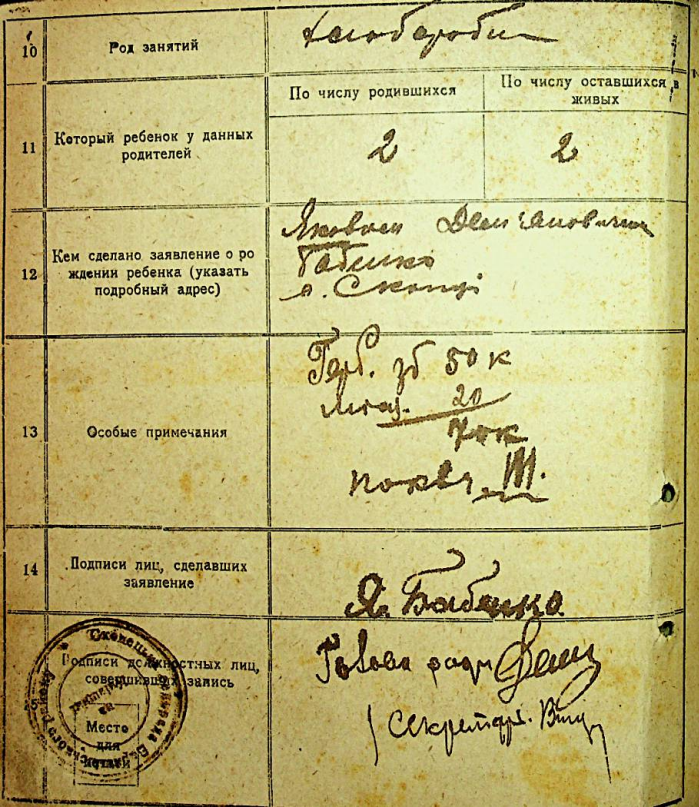 10
Род занятий
хлібороби
По числу родившихся
По числу оставшихся в
живых
11
Который ребенок у данных
родителей
2
2
12
Кем сделано заявление о ро
ждении ребенка (указать
подробный адрес)
Яковом Демʼяновичем
Бабенко
с. Скопці
13
Особые примечания
Герб. зб 50 к
20
70к
14
Подписи лиц, сделавших
заявление
Я. Бабенко
Подписи должностных лиц,
совершивших запись
Голова ради
Секретарь
Место
для